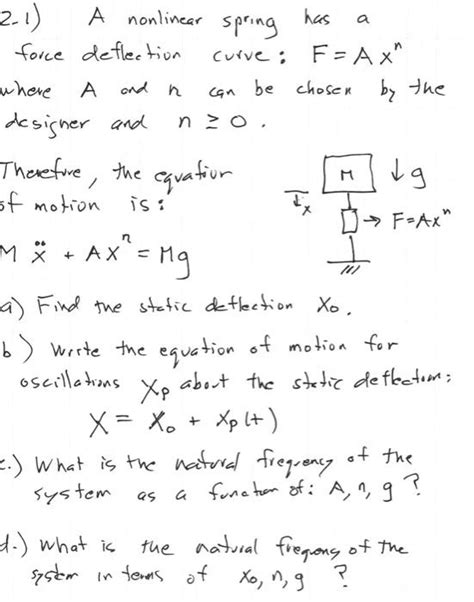 2.1) A nonlinear spring has a
force deflection curve: F = A xⁿ
where A and n can be chosen by the
designer and n ≥ 0.
Therefore, the equation
of motion is:
M
↓g
x
→ F=Axⁿ
M ẍ + A xⁿ = Mg
a) Find the static deflection x₀.
b) Write the equation of motion for
oscillations xₚ about the static deflection:
X = X₀ + xₚ(t)
c.) What is the natural frequency of the
system as a function of: A, n, g ?
d.) What is the natural frequency of the
system in terms of x₀, n, g ?